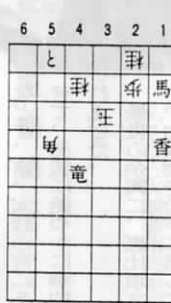 6 5 4 3 2 1
と 桂
桂 歩 馬
玉
角 香
竜